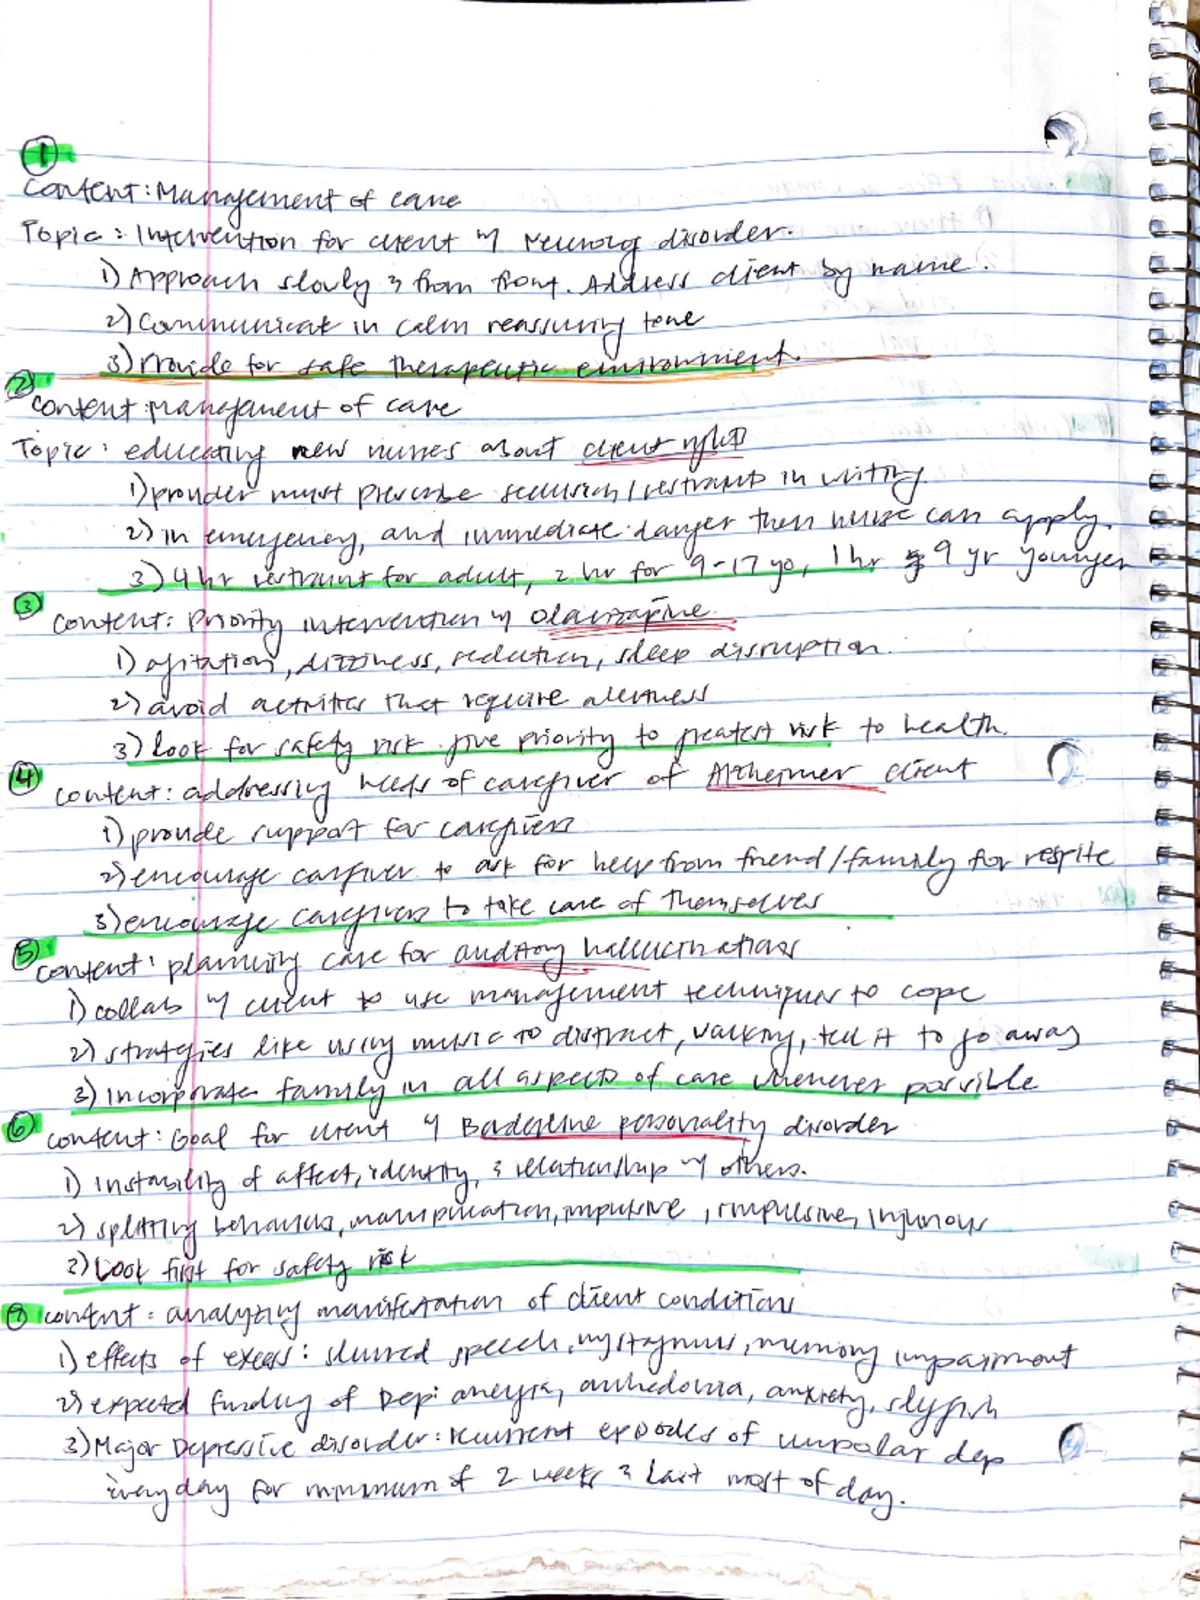 1
Content: Management of care
Topic: Intervention for client w/ Neurocog disorder.
1) Approach slowly & from front. Address client by name.
2) Communicat in calm reassuring tone
3) Provide for safe therapeutic environment.
2
Content: management of care
Topic: educating new nurses about client right
1) provider must prescribe seclusion/restraint in writing
2) in emergency, and immediate danger then nurse can apply.
3) 4 hr restraint for adult, 2 hr for 9-17 yo, 1 hr 9 yr younger
3
Content: Priority intervention w/ Olanzapine
1) agitation, dizziness, sedation, sleep disruption.
2) avoid activities that require alertness
3) look for safety risk give priority to greatest risk to health.
4
Content: addressing needs of caregiver of Alzheimer client
1) provide support for caregivers
2) encourage caregiver to ask for help from friend/family for respite
3) encourage caregivers to take care of themselves
5
Content: planning care for auditory hallucinations
1) collab w/ client to use management techniques to cope
2) strategies like using music to distract, walking, tell it to go away
3) Incorporate family in all aspects of care whenever possible
6
Content: Goal for client w/ Borderline personality disorder
1) instability of affect, identity, & relationship w/ others.
2) splitting behaviors, manipulation, impulsive, impulsive, injurious
3) Look first for safety risk
content: analyzing manifestation of client condition
1) effects of excess: slurred speech, nystagmus, memory impairment
2) expected finding of Dep: anergia, anhedonia, anxiety, slyfish
3) Major Depressive disorder: recurrent episodes of unipolar dep
everyday for minimum of 2 weeks & last most of day.